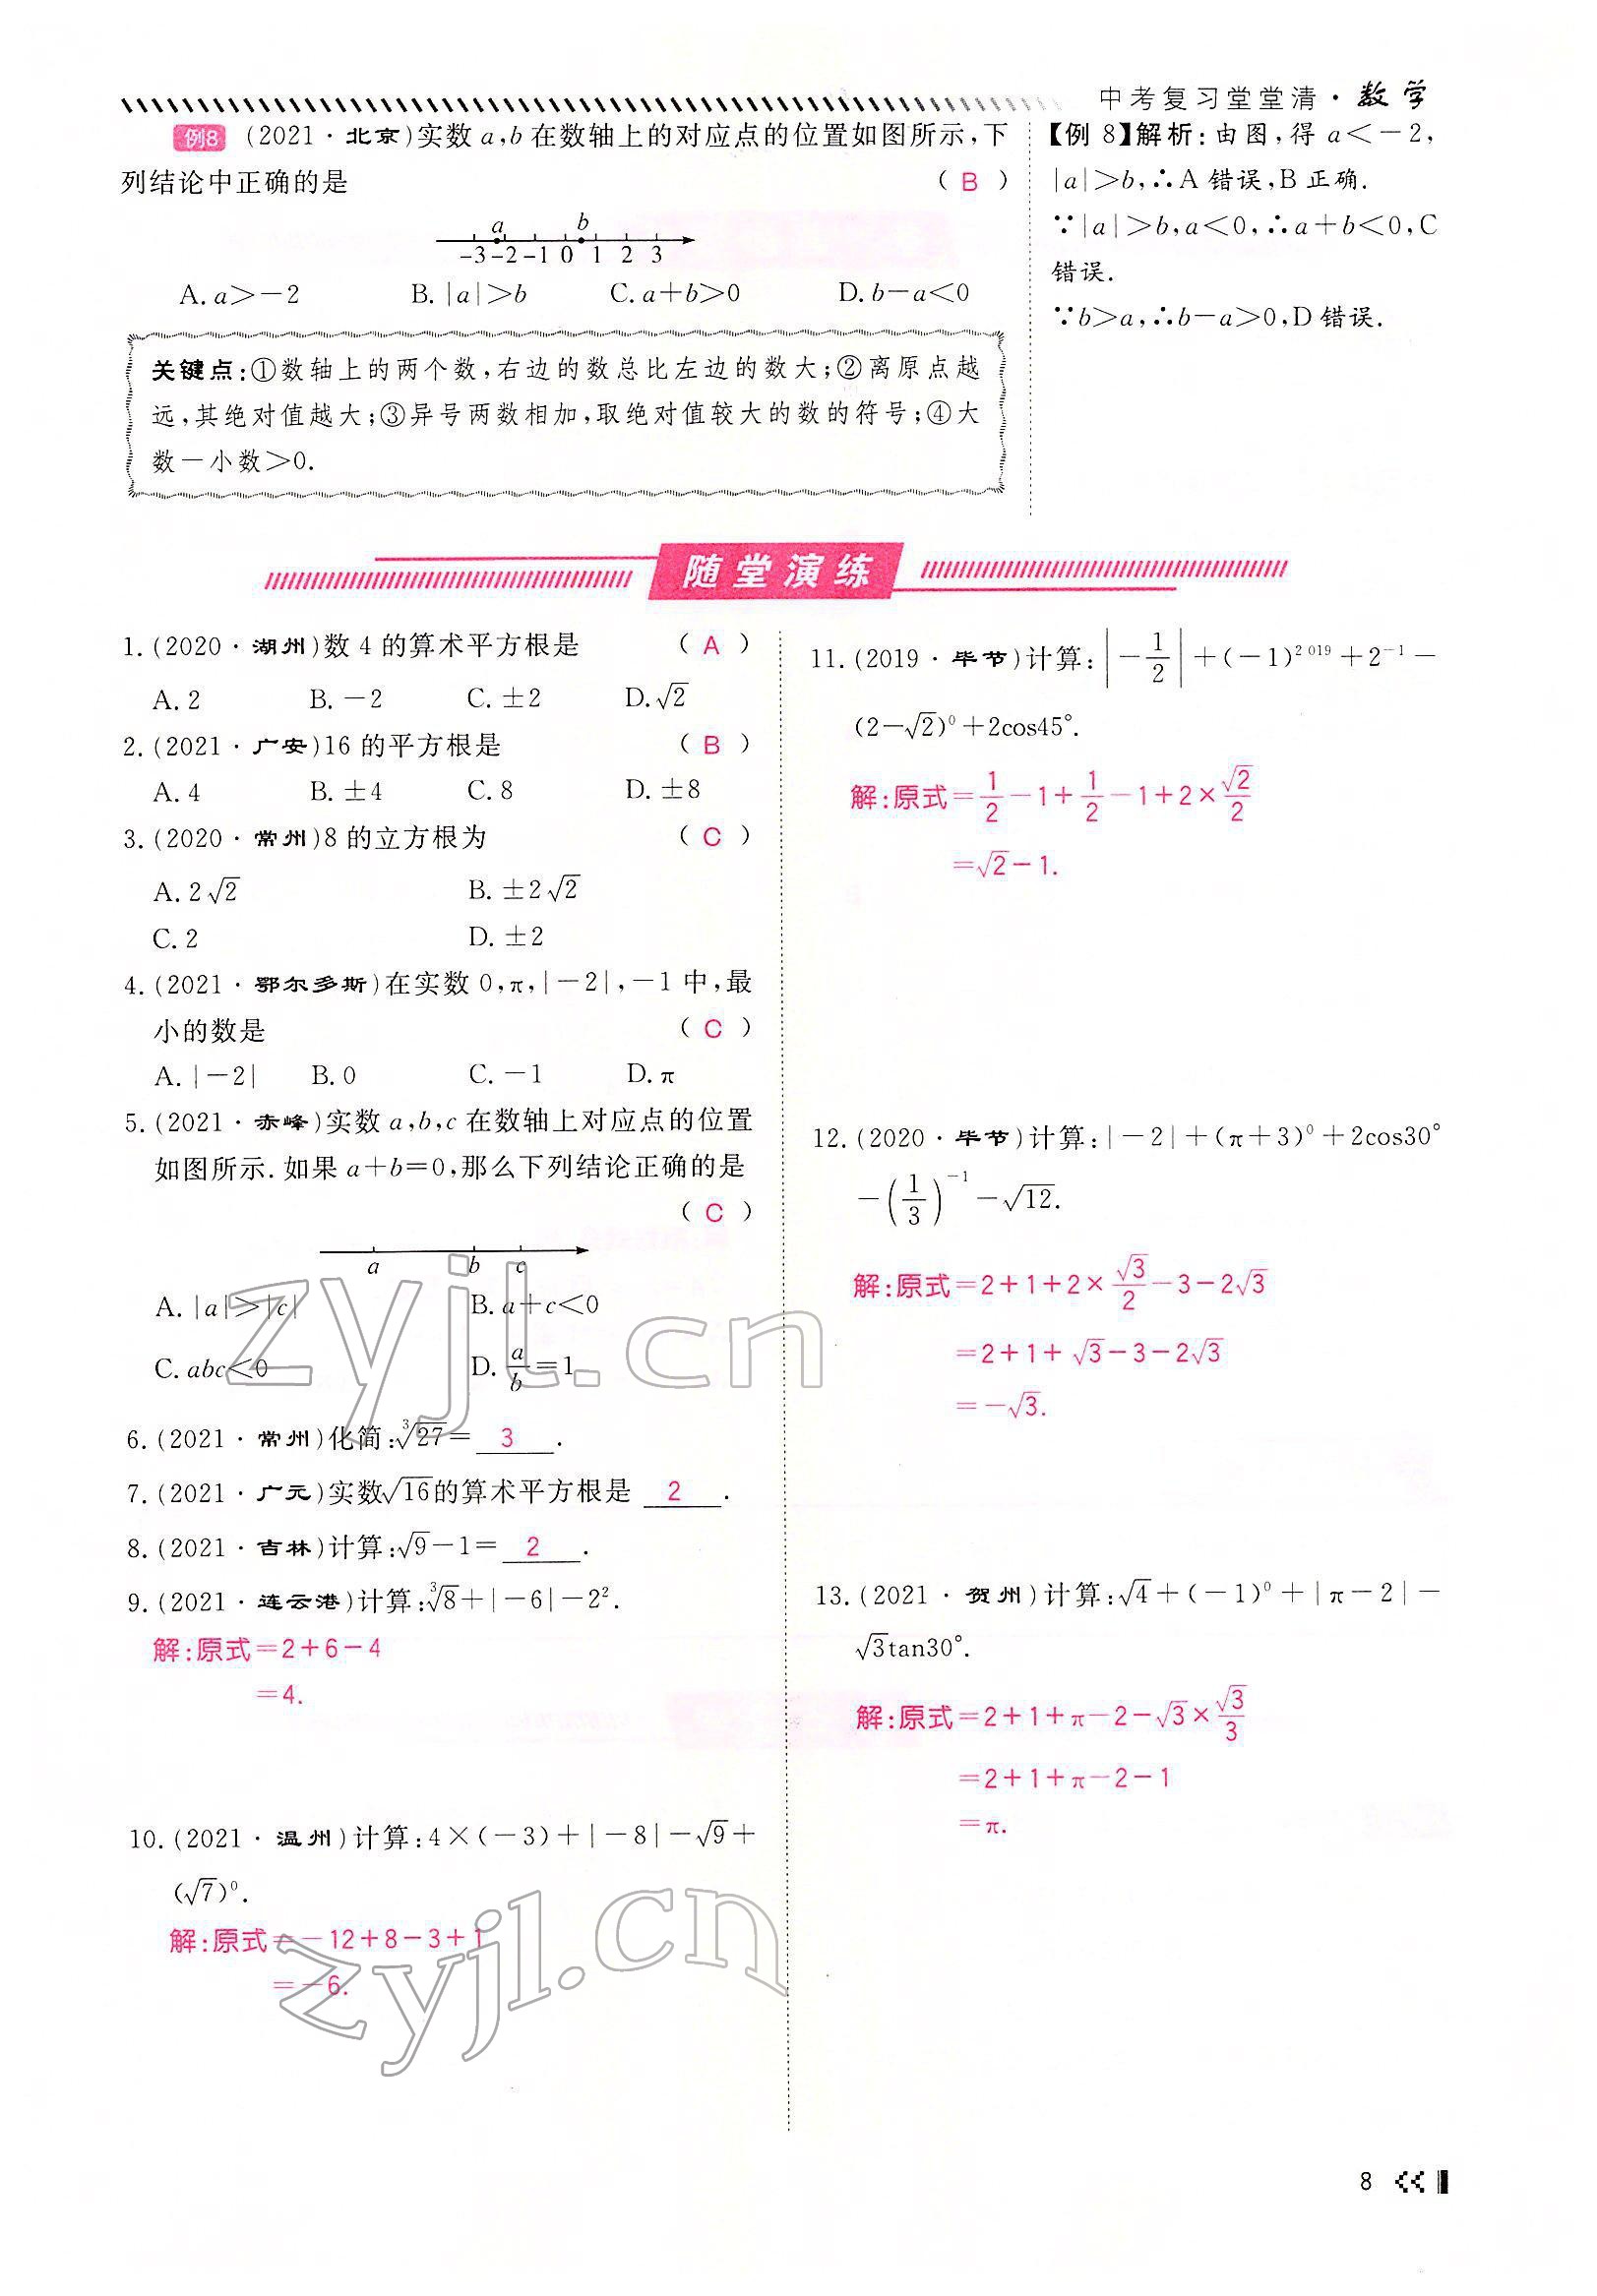 中考复习堂堂清·数学
例8 (2021·北京)实数a,b在数轴上的对应点的位置如图所示,下
列结论中正确的是 ( B )
a b
-3 -2 -1 0 1 2 3
A. a>-2 B. |a|>b C. a+b>0 D. b-a<0
关键点:①数轴上的两个数,右边的数总比左边的数大;②离原点越
远,其绝对值越大;③异号两数相加,取绝对值较大的数的符号;④大
数-小数>0.
【例8】解析:由图,得a<-2,
|a|>b,∴A错误,B正确.
∵|a|>b,a<0,∴a+b<0,C
错误.
∵b>a,∴b-a>0,D错误.
随堂演练
1. (2020·湖州)数4的算术平方根是 ( A )
A. 2 B. -2 C. ±2 D. √2
2. (2021·广安)16的平方根是 ( B )
A. 4 B. ±4 C. 8 D. ±8
3. (2020·常州)8的立方根为 ( C )
A. 2√2 B. ±2√2
C. 2 D. ±2
4. (2021·鄂尔多斯)在实数0,π,|-2|,-1中,最
小的数是 ( C )
A. |-2| B. 0 C. -1 D. π
5. (2021·赤峰)实数a,b,c在数轴上对应点的位置
如图所示.如果a+b=0,那么下列结论正确的是
( C )
a b c
A. |a|>|c| B. a+c<0
C. abc<0 D. a/b=1
6. (2021·常州)化简:∛27= 3 .
7. (2021·广元)实数√16的算术平方根是 2 .
8. (2021·吉林)计算:√9-1= 2 .
9. (2021·连云港)计算:∛8+|-6|-2².
解:原式=2+6-4
=4.
10. (2021·温州)计算:4×(-3)+|-8|-√9+
(√7)⁰.
解:原式=-12+8-3+1
=-6.
11. (2019·毕节)计算:|-1/2|+(-1)²⁰¹⁹+2⁻¹-
(2-√2)⁰+2cos45°.
解:原式=1/2-1+1/2-1+2×√2/2
=√2-1.
12. (2020·毕节)计算:|-2|+(π+3)⁰+2cos30°
-(1/3)⁻¹-√12.
解:原式=2+1+2×√3/2-3-2√3
=2+1+√3-3-2√3
=-√3.
13. (2021·贺州)计算:√4+(-1)⁰+|π-2|-
√3tan30°.
解:原式=2+1+π-2-√3×√3/3
=2+1+π-2-1
=π.
zyjl.cn
zyjl.cn
8